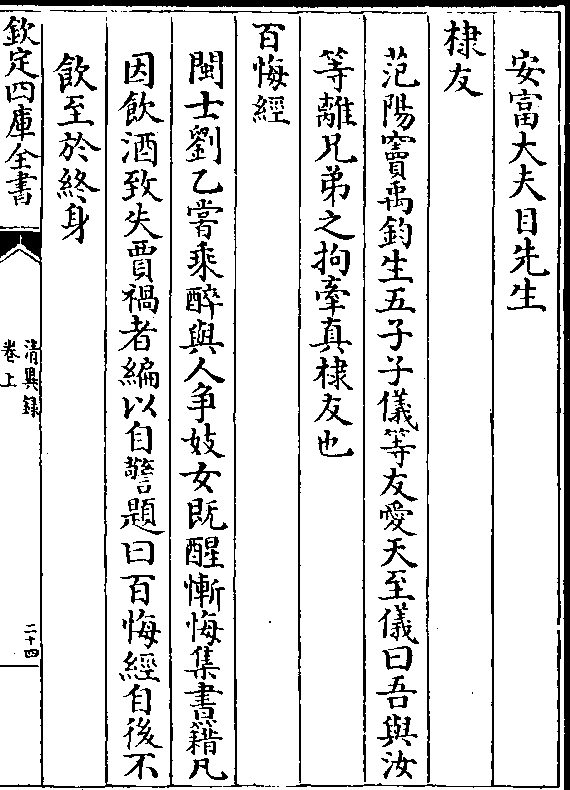 安富大夫目先生
棣友
范陽竇禹鈞生五子子儀等友愛天至儀曰吾與汝
等離兄弟之拘牽真棣友也
百悔經
閩士劉乙嘗乘醉與人争妓女既醒慚悔集書籍凡
因飲酒致失賈禍者編以自警題曰百悔經自後不
飲至於終身
欽定四庫全書
清異録
卷上
二十四